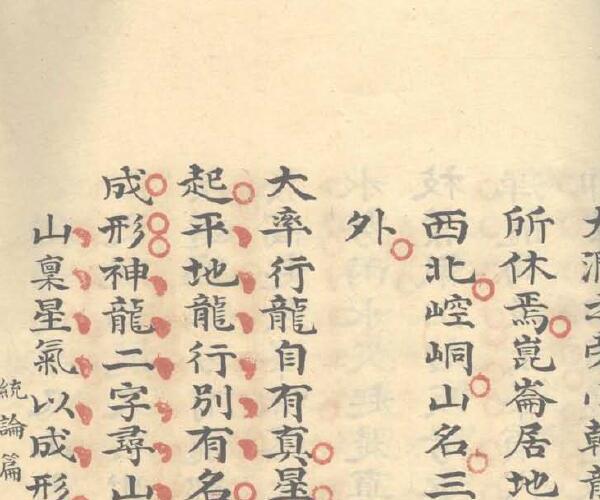 大澗之旁小幹龍
所休焉崑崙居地
西北崆峒山名三
外
大率行龍自有真星
起平地龍行別有名
成形神龍二字尋山
山稟星氣以成形
統論篇